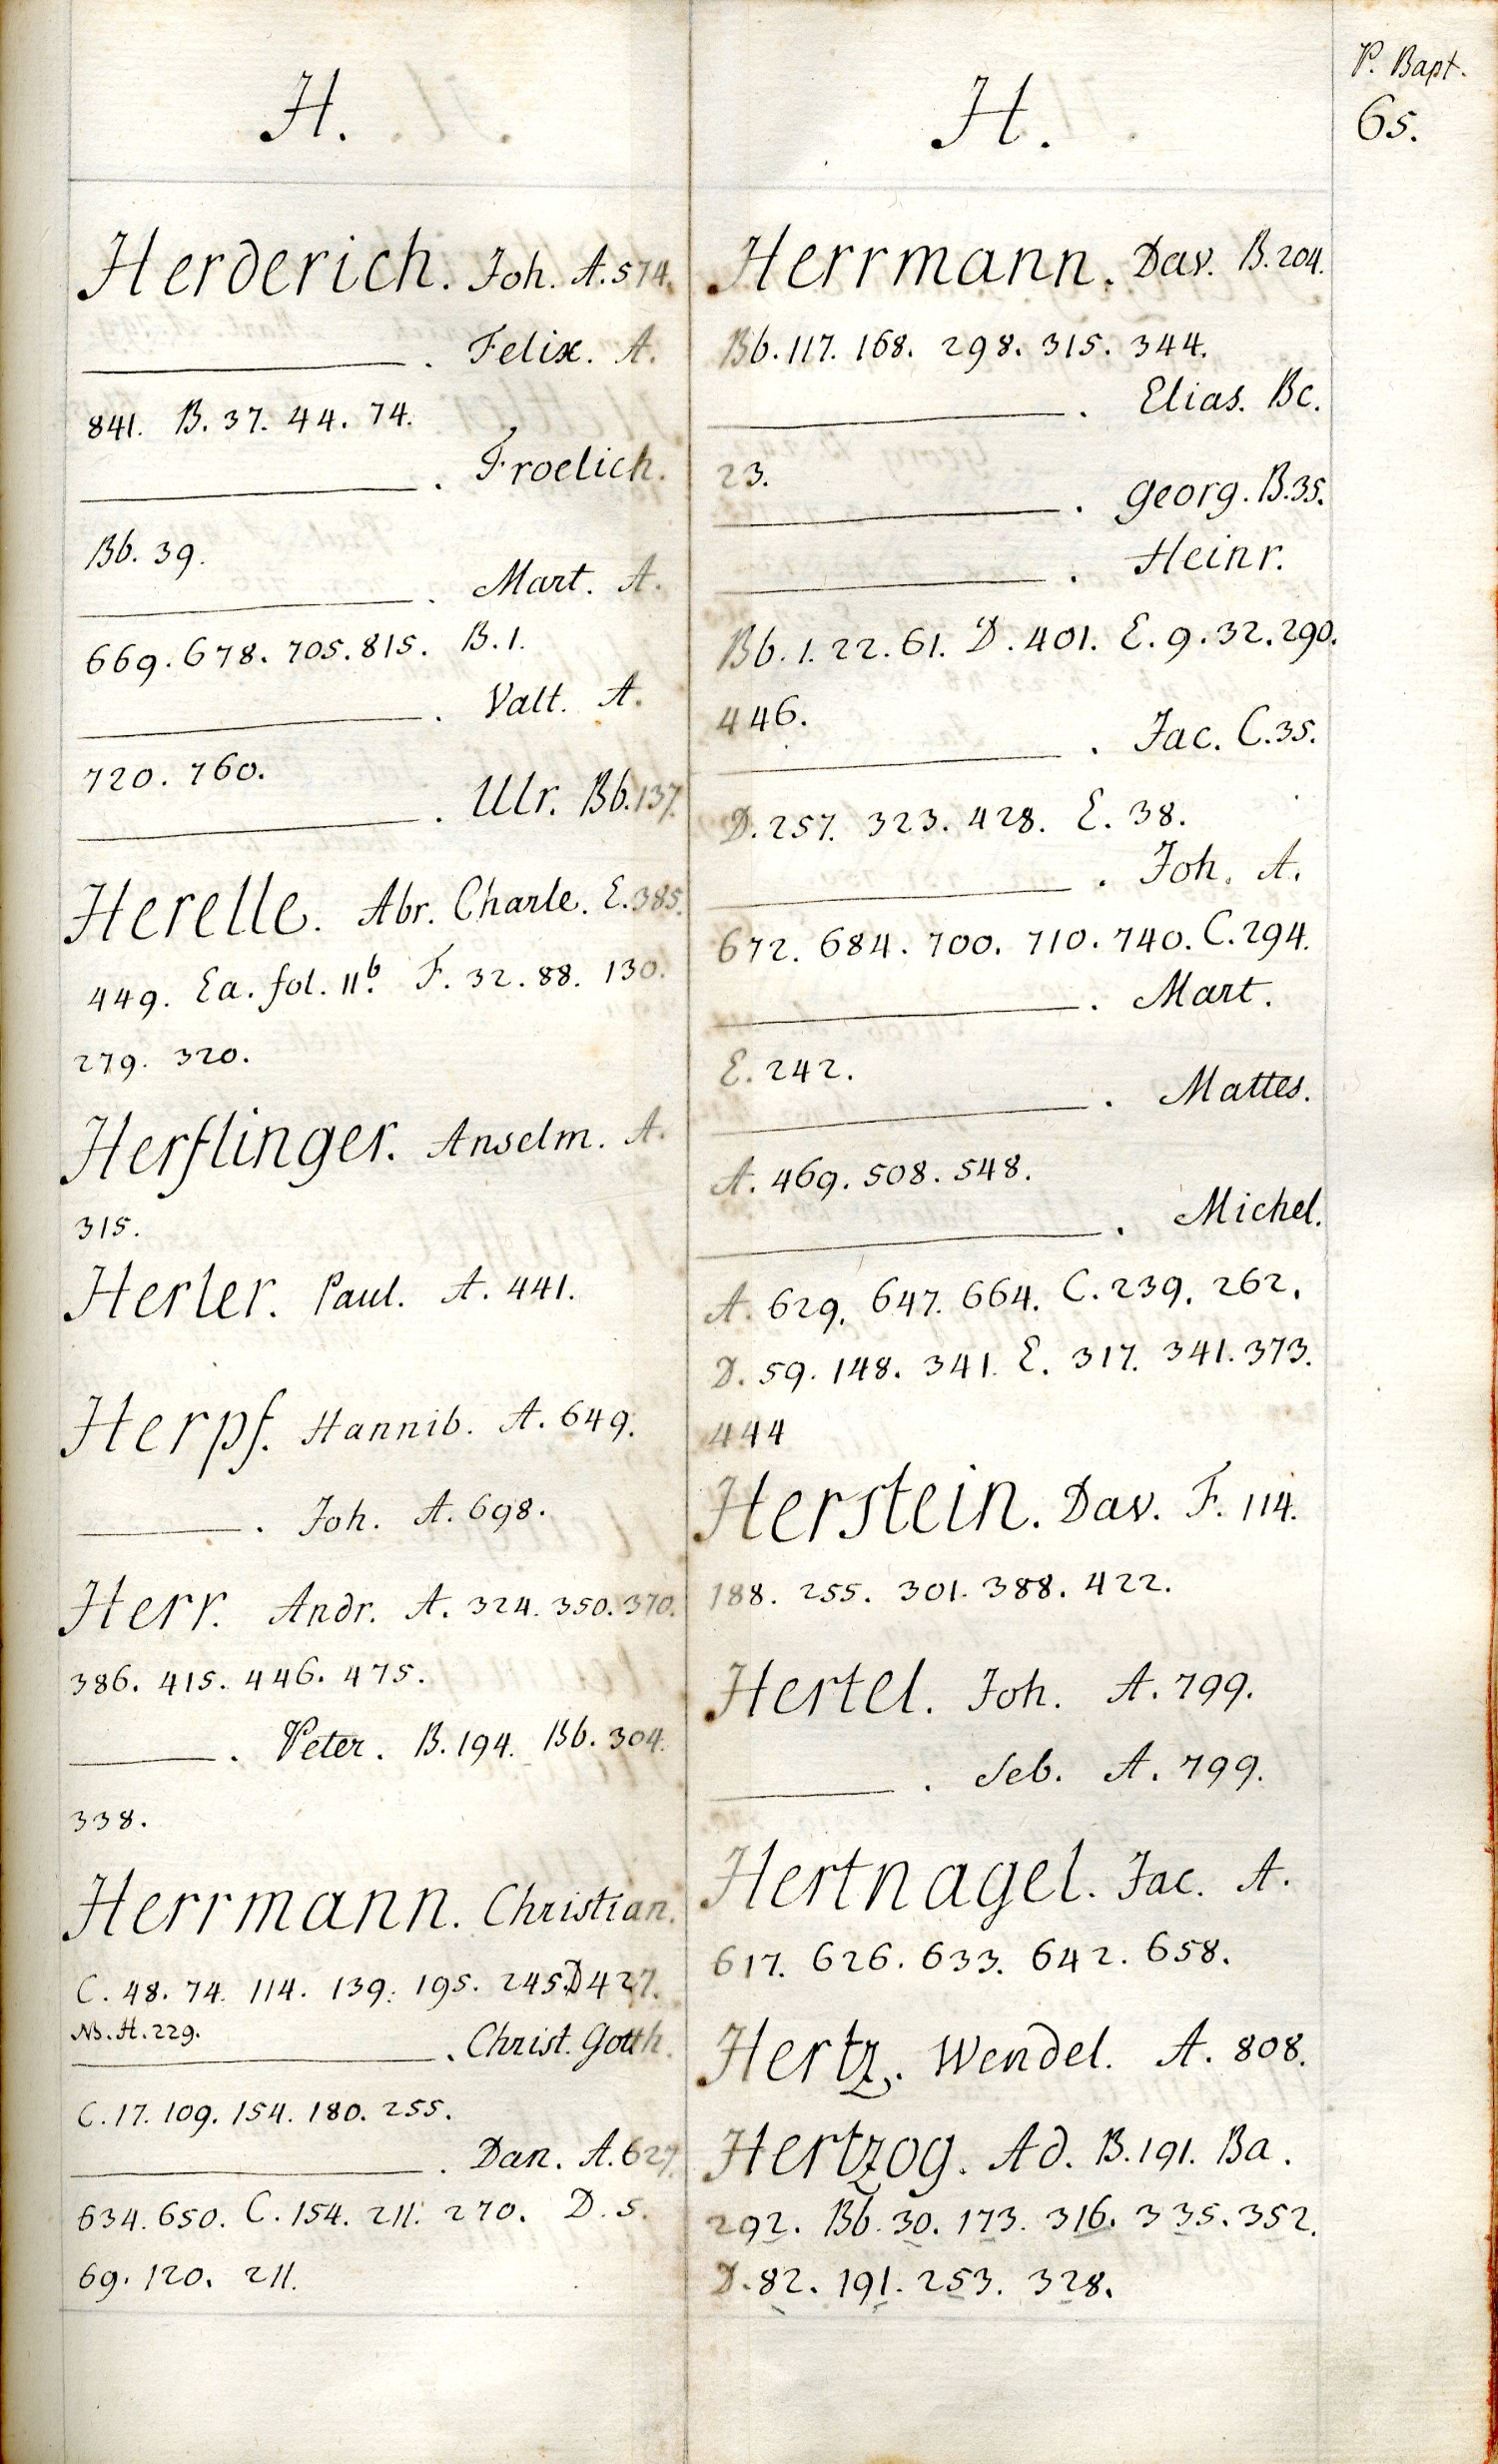 P. Bapt.
65.
H.
Herderich. Joh. A. 574.
———. Felix. A.
841. B. 37. 44. 74.
———. Froelich.
Bb. 39.
———. Mart. A.
669. 678. 705. 815. B. 1.
———. Valt. A.
720. 760.
———. Ulr. Bb. 137.
Herelle. Abr. Charle. E. 385.
449. Ea. fol. 11b. F. 32. 88. 130.
279. 320.
Herflinger. Anselm. A.
315.
Herler. Paul. A. 441.
Herpf. Hannib. A. 649.
———. Joh. A. 698.
Herr. Andr. A. 324. 350. 370.
386. 415. 446. 475.
———. Peter. B. 194. Bb. 304.
338.
Herrmann. Christian.
C. 48. 74. 114. 139. 195. 245. D 427.
NB. H. 229.
———. Christ. Gotth.
C. 17. 109. 154. 180. 255.
———. Dan. A. 627.
634. 650. C. 154. 211. 270. D. 5.
69. 120. 211.
H.
Herrmann. Dav. B. 204.
Bb. 117. 168. 298. 315. 344.
———. Elias. Bc.
23.
———. Georg. B. 35.
———. Heinr.
Bb. 1. 22. 61. D. 401. E. 9. 32. 290.
446.
———. Jac. C. 35.
D. 257. 323. 428. E. 38.
———. Joh. A.
672. 684. 700. 710. 740. C. 294.
———. Mart.
E. 242.
———. Mattes.
A. 469. 508. 548.
———. Michel.
A. 629. 647. 664. C. 239. 262.
D. 59. 148. 341. E. 317. 341. 373.
444
Herstein. Dav. F. 114.
188. 255. 301. 388. 422.
Hertel. Joh. A. 799.
———. Seb. A. 799.
Hertnagel. Jac. A.
617. 626. 633. 642. 658.
Hertz. Wendel. A. 808.
Hertzog. Ad. B. 191. Ba.
292. Bb. 30. 173. 316. 335. 352.
D. 82. 191. 253. 328.